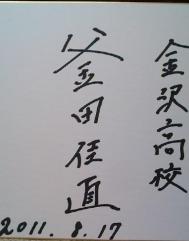 金沢高校
釜田佳直
2011. 8. 17